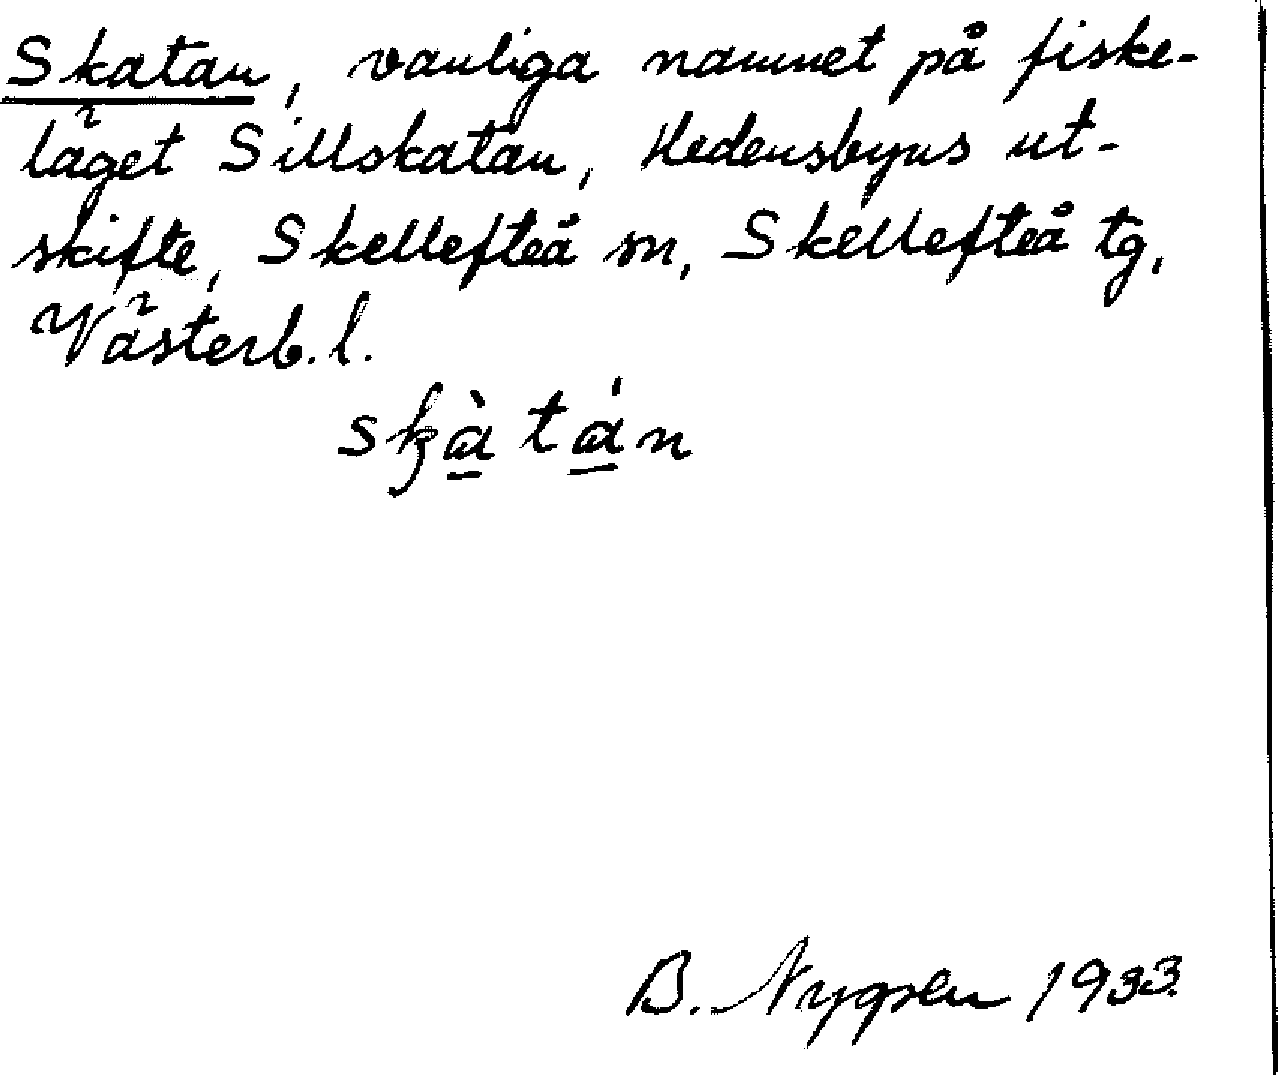 Skatan, vanliga namnet på fiske-
läget Sillskatan, Hedensbyns ut-
skifte, Skellefteå sn, Skellefteå tg,
Västerb. l.
skàtán
B. Nygren 1933.